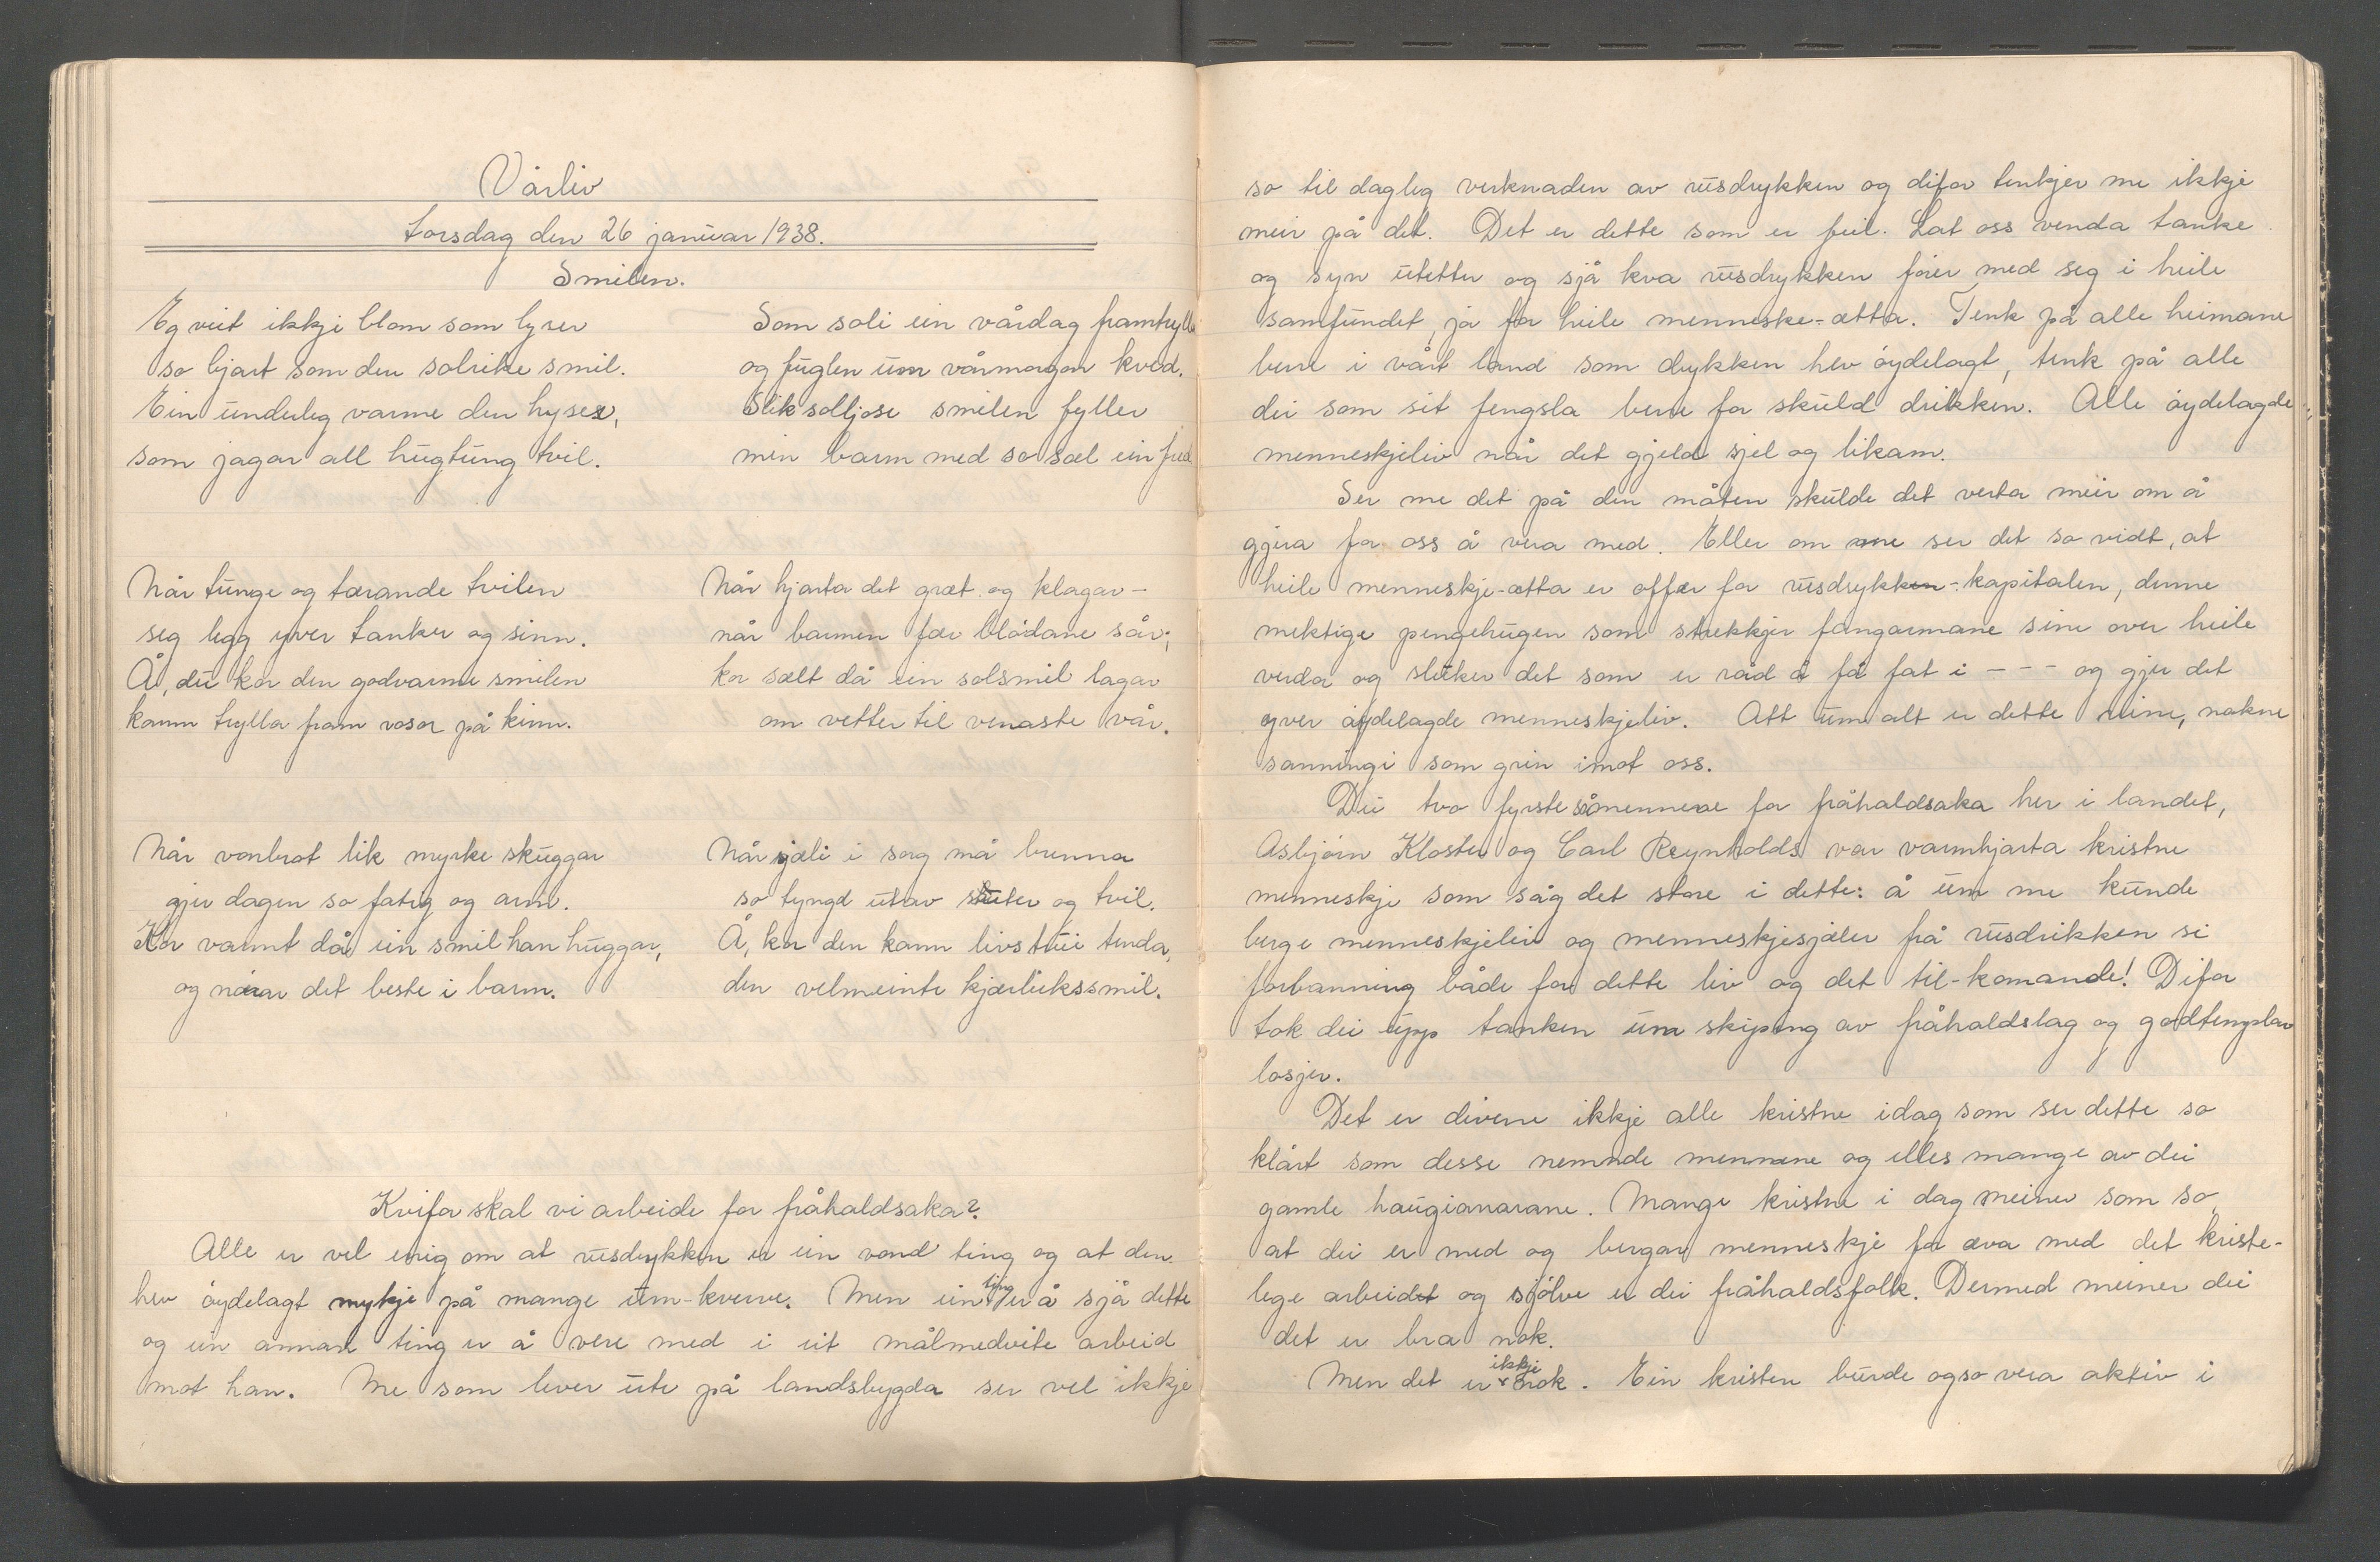 Vårliv
Torsdag den 26 januar 1938.
Smilen.
Eg veit ikkji blom som lyser
so bjart som den solrike smil.
Ein underleg varme den hyser,
som jagar all hugtung tvil.
Når tunge og tærande tvilen
seg legg yver tanker og sinn.
Å, du kor den godvarme smilen
kann trylla fram rosor på kinn.
Når vonbrot lik myrke skuggar
gjer dagen so fatig og arm.
Kor varmt då ein smil han huggar,
og nørar det beste i barm.
Som soli ein vårdag framtryll
og fuglen um vårmorgon kved.
Slik solljose smilen fyller
min barm med so sæl ein fred
Når hjarta det græt og klagar -
når barmen fær blødane sår;
kor sælt då ein solsmil lagar
om vetter til venaste vår.
Når sjæli i sorg må brenna
so tyngd utav suter og tvil.
Å, kor den kann livstrui tenda,
den velmeinte kjærlikssmil.
Kvifor skal vi arbeide for fråhaldsaka?
Alle er vel enig om at rusdrykken er ein vond ting og at den
hev øydelagt mykje på mange um-kverve. Men ein ting er å sjå dette
og ein annan ting er å vere med i eit målmedvite arbeid
mot han. Me som lever ute på landsbygda ser vel ikkje
so til dagleg verknaden av rusdrykken og difor tenkjer me ikkje
meir på det. Det er dette som er feil. Lat oss venda tanke
og syn utetter og sjå kva rusdrykken fører med seg i heile
samfundet, ja for heile menneske-ætta. Tenk på alle heimane
berre i vårt land som drykken hev øydelagt, tenk på alle
dei som sit fengsla berre for skuld drikken. Alle øydelagde
menneskjeliv når det gjeld sjel og likam.
Ser me det på den måten skulde det verta meir om å
gjera for oss å vera med. Eller om me ser det so vidt, at
heile menneskje-ætta er offer for rusdrykken-kapitalen, denne
mektige pengehugen som strekkjer fangarmane sine over heile
verda og sluker det som er råd å få fat i - - - og gjer det
yver øydelagde menneskjeliv. Att um alt er dette reine, nakne
sanningi som grin imot oss.
Dei two fyrste såmennene for fråhaldsaka her i landet,
Asbjørn Kloster og Carl Reynholds var varmhjarta kristne
menneskje som såg det store i dette: å um me kunde
berge menneskjeliv og menneskjesjæler frå rusdrikken si
forbanning både for dette liv og det til-komande! Difor
tok dei upp tanken um skiping av fråhaldslag og godtemplar
losjer.
Det er diverre ikkje alle kristne idag som ser dette so
klårt som desse nemnde mennene og elles mange av dei
gamle haugianarane. Mange kristne i dag meiner som so,
at dei er med og bergar menneskje for æva med det kriste-
lege arbeidet og sjølve er dei fråhaldsfolk. Dermed meiner dei
det er bra nok.
Men det er ikkje nok. Ein kristen burde ogso vera aktiv i